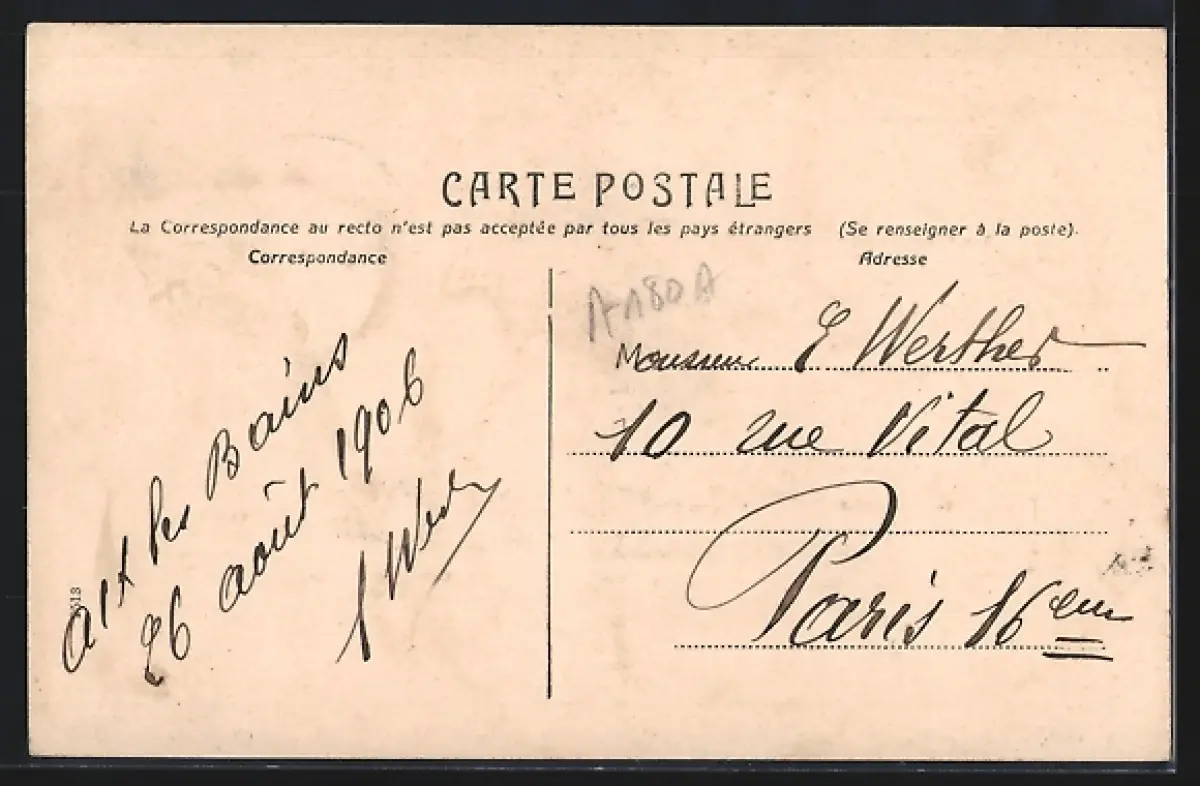 CARTE POSTALE
La Correspondance au recto n'est pas acceptée par tous les pays étrangers (Se renseigner à la poste).
Correspondance
Adresse
Aix les Bains
26 août 1906
Monsieur E Werther
10 rue Vital
Paris 16eme